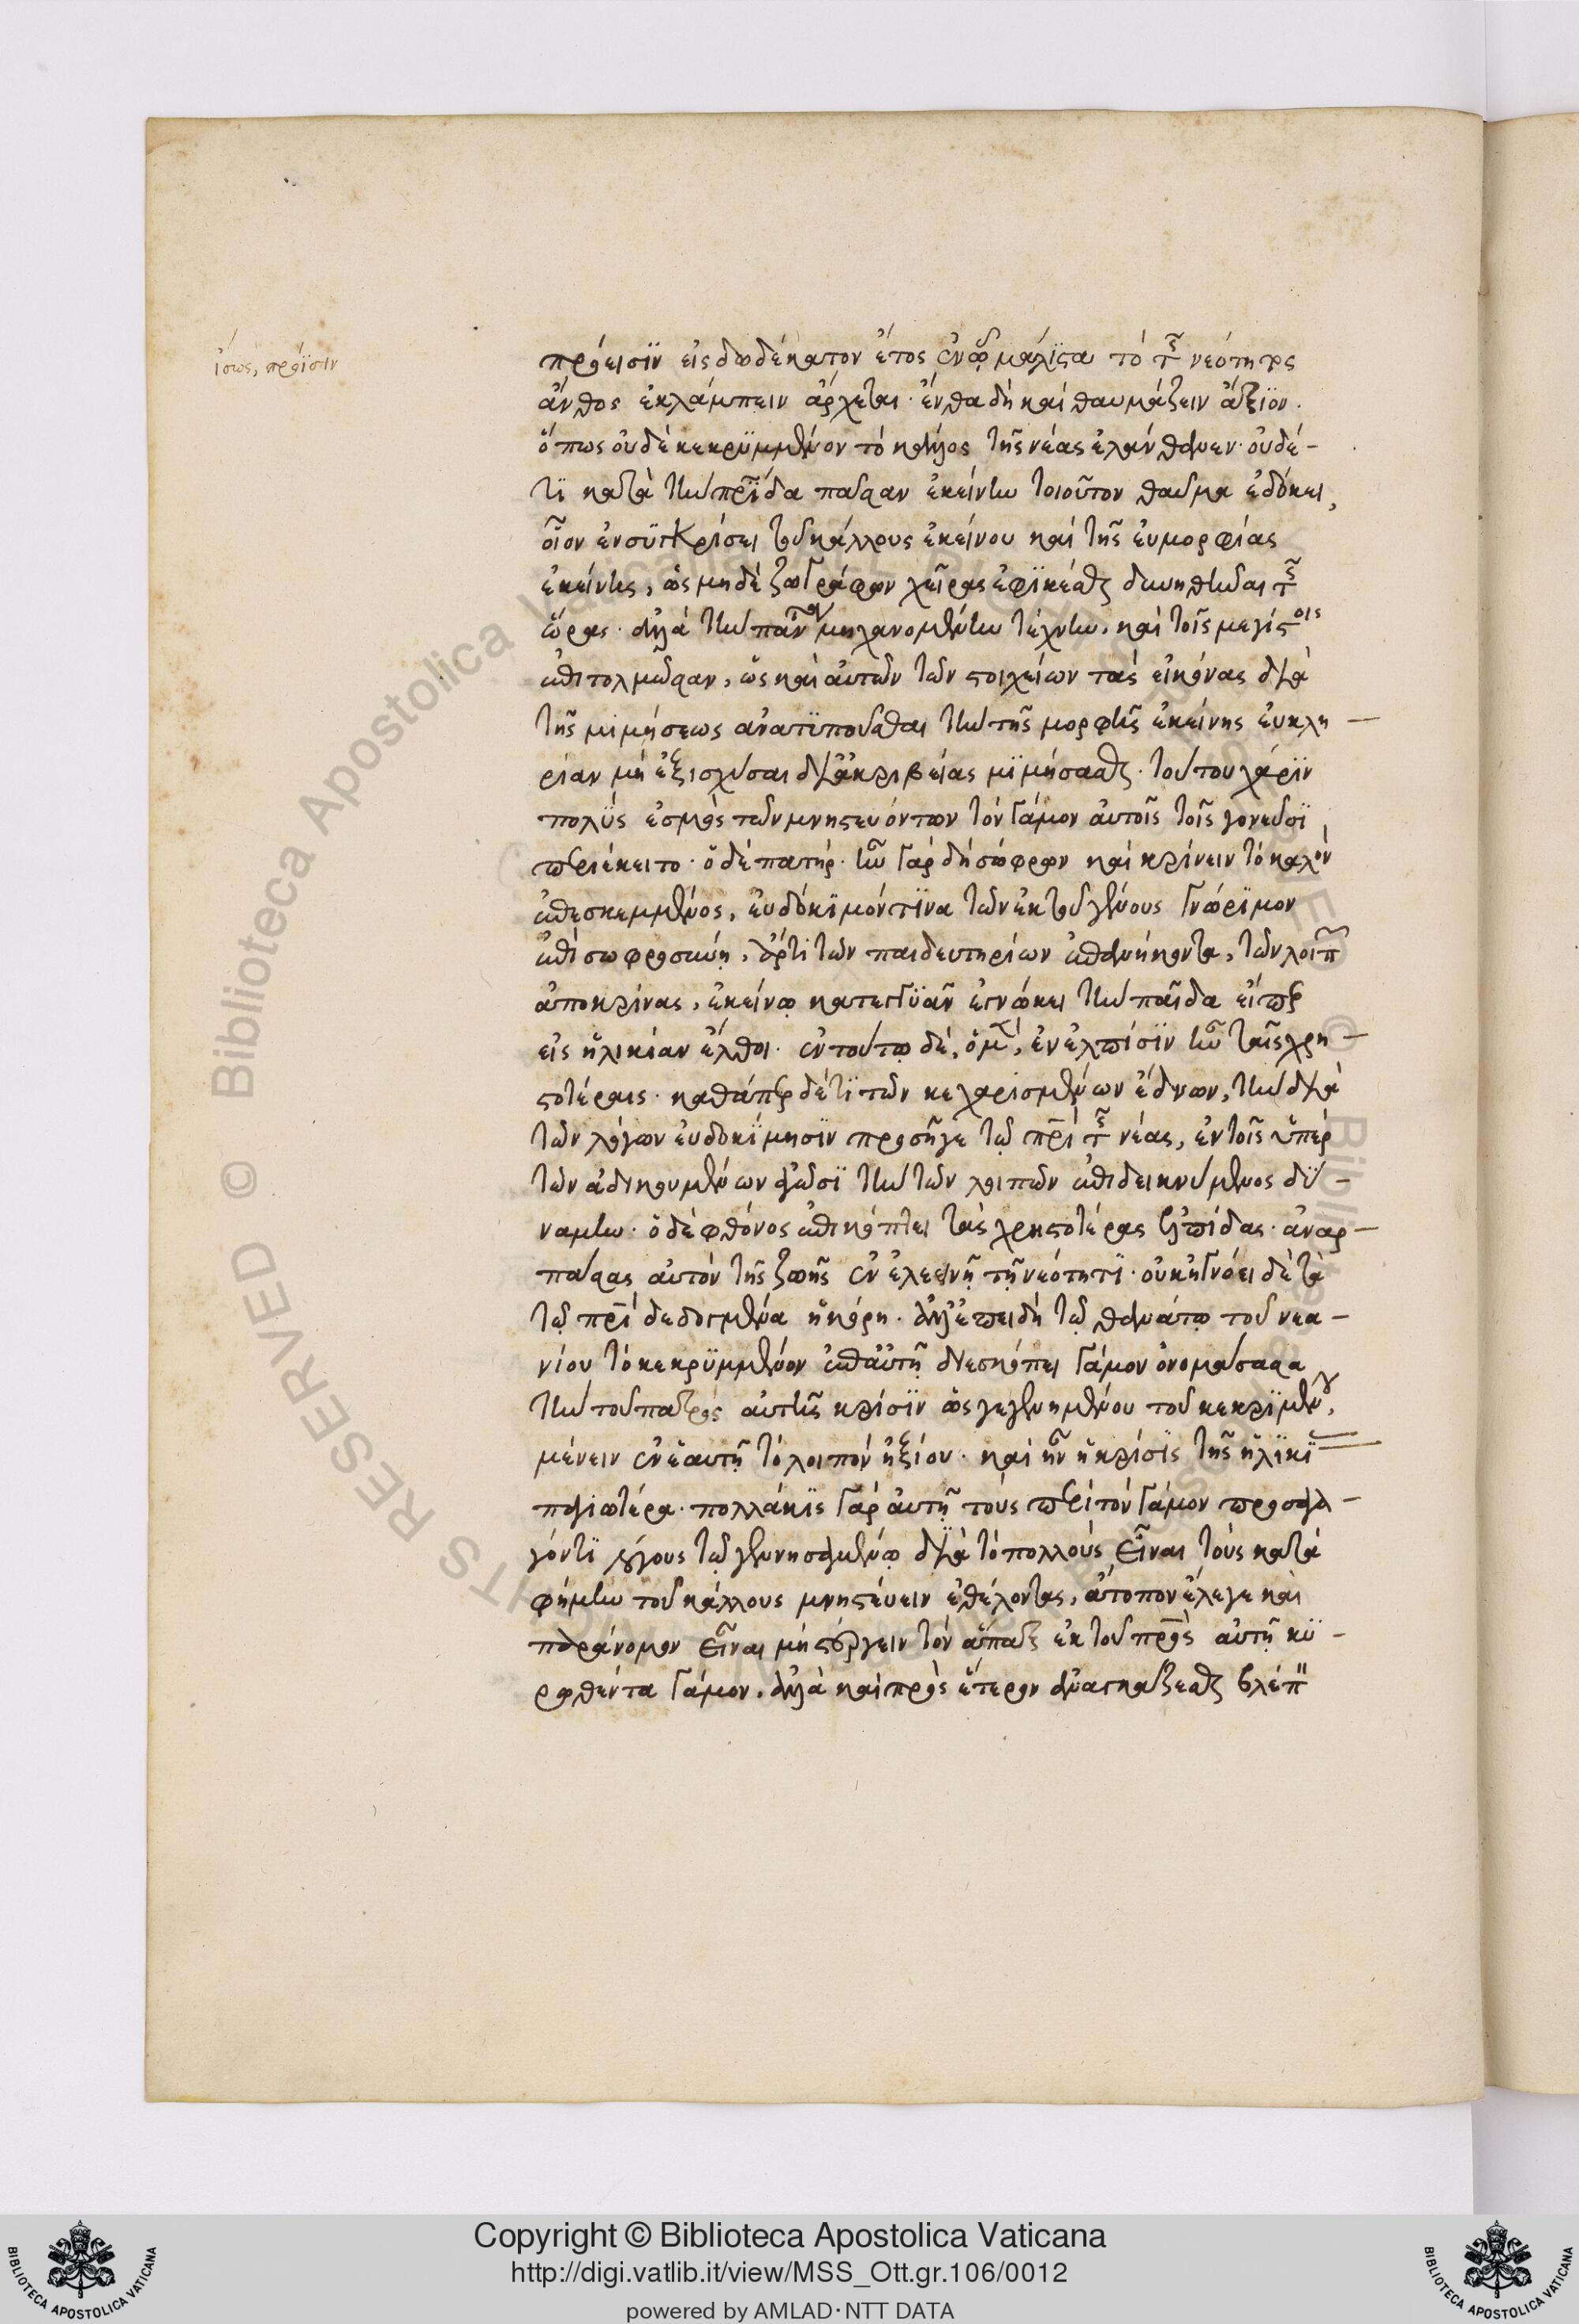 ἴσως, πρόϊσιν
πρόεισϊν εἰς δωδέκατον ἔτος ἐν ὧ μάλϊστα τὸ τῆς νεότητος
ἄνθος ἐκλάμπειν ἄρχεται· ἔνθα δὴ καὶ θαυμάζειν ἄξϊον.
ὅπως οὐδὲ κεκρϋμμένον τὸ κάλλος τῆς νέας ἐλάνθανεν· οὐδέ-
τϊ κατὰ τὴν πρῖδα πᾶσαν ἐκείνην τοιοῦτον θαῦμα ἐδόκει,
οἷον ἐν συγκρίσει τοῦ κάλλους ἐκείνου καὶ τῆς εὐμορφίας
ἐκείνης, ὡς μηδὲ ζωγράφων χεῖρας ἐφϊκέσθαι δυνηθῆναι τῆς
ὥρας· ἀλλὰ τὴν πάντων μηχανομένην τέχνην, καὶ τοῖς μεγίστοις
ἐπιτολμῶσαν, ὡς καὶ αὐτῶν τῶν στοιχείων τὰς εἰκόνας διὰ
τῆς μιμήσεως ἀνατϋποῦσθαι τὴν τῆς μορφῆς ἐκείνης εὐκλη-
ρίαν μὴ ἐξισχῦσαι δι' ἀκριβείας μϊμήσασθαι· τούτου χάρϊν
πολὺς ἐσμὸς τῶν μνηστευόντων τὸν γάμον αὐτοῖς τοῖς γονεῦσϊ
περιέκειτο· ὁ δὲ πατήρ· ἦν γὰρ δὴ σώφρων καὶ κρίνειν τὸ καλὸν
ἐπεσκεμμένος, εὐδόκϊμόν τϊνα τῶν ἐκ τοῦ γένους γνώρϊμον
ἐπὶ σωφροσύνη, ἄρτι τῶν παιδευτηρίων ἐπανήκοντα, τῶν λοιπῶν
ἀποκρίνας, ἐκείνω κατεγγϋᾶν ἐγνώκει τὴν παῖδα εἴπερ
εἰς ἡλικίαν ἔλθοι· ἐν τούτω δὲ, ὁ μὲν, ἐν ἐλπίσϊν ἦν ταῖς χρη-
στοτέραις· καθάπερ δέ τϊ τῶν κεχαρισμένων ἕδνων, τὴν διὰ
τῶν λόγων εὐδοκίμησϊν προσῆγε τῶ πρῖ τῆς νέας, ἐν τοῖς ὑπὲρ
τῶν ἀδικουμένων ἀγῶσϊ τὴν τῶν λοιπῶν ἐπιδεικνύμενος δϋ-
ναμιν· ὁ δὲ φθόνος ἐπικόπτει τὰς χρηστοτέρας ἐλπίδας· ἀναρ-
πάσας αὐτὸν τῆς ζωῆς ἐν ἐλεεινῆ τῆ νεότητϊ· οὐκ ἠγνόει δὲ τὰ
τῶ πρῖ δεδογμένα ἡ κόρη· ἀλλ' ἐπειδὴ τῶ θανάτω τοῦ νεα-
νίου τὸ κεκρϋμμένον ἐπ' αὐτῆ διεσκόπει γάμον ὀνομάσασα
τὴν τοῦ πατρὸς αὐτῆς κρίσϊν ὡς γεγενημένου τοῦ κεκρϊμένου,
μένειν ἐν ἑαυτῆ τὸ λοιπὸν ἠξίου· καὶ ἦν ἡ κρίσϊς τῆς ἡλϊκίας
παγιωτέρα· πολλάκϊς γὰρ αὐτῆ τοὺς περὶ τὸν γάμον προσαγα-
γόντϊ λόγους τῶ γεννησαμένω διὰ τὸ πολλοὺς εἶναι τοὺς κατὰ
φήμην τοῦ κάλλους μνηστεύειν ἐθέλοντας, ἄτοπον ἔλεγε καὶ
παράνομον εἶναι μὴ στέργειν τὸν ἅπαξ ἐκ τοῦ πρὸς αὐτῆ κϋ-
ρωθέντα γάμον, ἀλλὰ καὶ πρὸς ἕτερον ἀναγκάζεσθαι βλέπειν
Copyright © Biblioteca Apostolica Vaticana
http://digi.vatlib.it/view/MSS_Ott.gr.106/0012
powered by AMLAD·NTT DATA